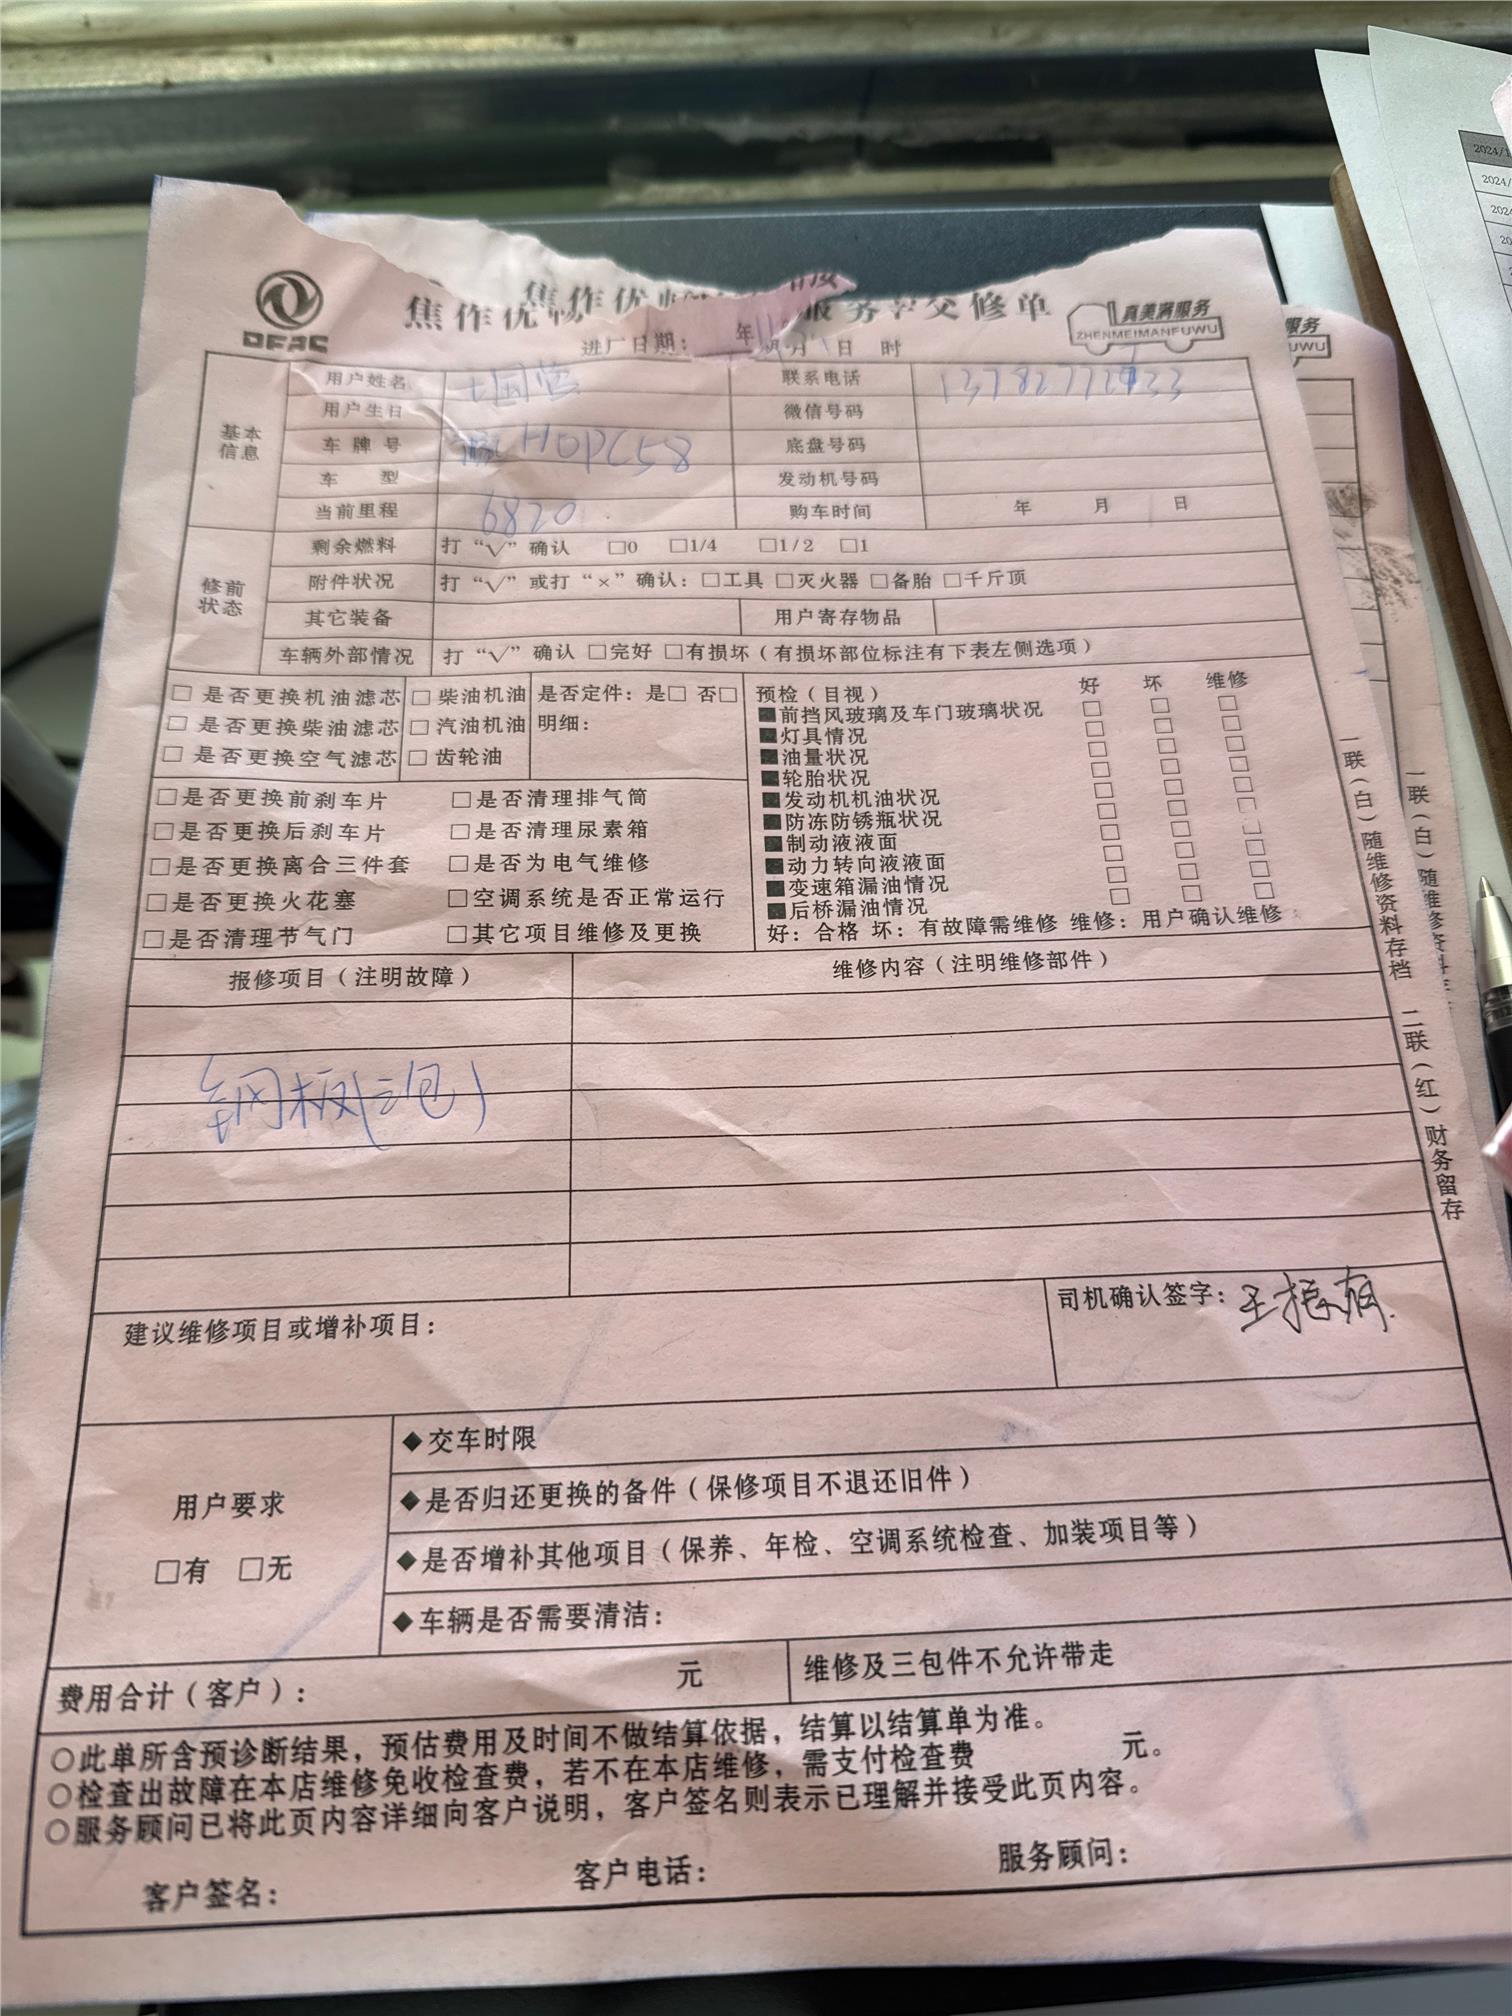 焦作优
服务站交修单
真美满服务
ZHENMEIMANFUWU
进厂日期： 年 月 日 时
基本信息
用户姓名 王国营 联系电话
用户生日 微信号码
车牌号 豫HOPC58 底盘号码
车 型 发动机号码
当前里程 6820 购车时间 年 月 日
修前状态
剩余燃料 打“√”确认 □0 □1/4 □1/2 □1
附件状况 打“√”或打“×”确认：□工具 □灭火器 □备胎 □千斤顶
其它装备 用户寄存物品
车辆外部情况 打“√”确认 □完好 □有损坏（有损坏部位标注有下表左侧选项）
□ 是否更换机油滤芯 □ 柴油机油 是否定件：是□ 否□
□ 是否更换柴油滤芯 □ 汽油机油 明细：
□ 是否更换空气滤芯 □ 齿轮油
□是否更换前刹车片 □是否清理排气筒
□是否更换后刹车片 □是否清理尿素箱
□是否更换离合三件套 □是否为电气维修
□是否更换火花塞 □空调系统是否正常运行
□是否清理节气门 □其它项目维修及更换
预检（目视） 好 坏 维修
■前挡风玻璃及车门玻璃状况 □ □ □
■灯具情况 □ □ □
■油量状况 □ □ □
■轮胎状况 □ □ □
■发动机机油状况 □ □ □
■防冻防锈瓶状况 □ □ □
■制动液液面 □ □ □
■动力转向液液面 □ □ □
■变速箱漏油情况 □ □ □
■后桥漏油情况 □ □ □
好：合格 坏：有故障需维修 维修：用户确认维修
报修项目（注明故障） 维修内容（注明维修部件）
钢板(三包)
建议维修项目或增补项目：
司机确认签字：
用户要求
□有 □无
◆交车时限
◆是否归还更换的备件（保修项目不退还旧件）
◆是否增补其他项目（保养、年检、空调系统检查、加装项目等）
◆车辆是否需要清洁：
费用合计（客户）： 元 维修及三包件不允许带走
○此单所含预诊断结果，预估费用及时间不做结算依据，结算以结算单为准。
○检查出故障在本店维修免收检查费，若不在本店维修，需支付检查费 元。
○服务顾问已将此页内容详细向客户说明，客户签名则表示已理解并接受此页内容。
客户签名： 客户电话： 服务顾问：
一联（白）随维修资料存档 二联（红）财务留存